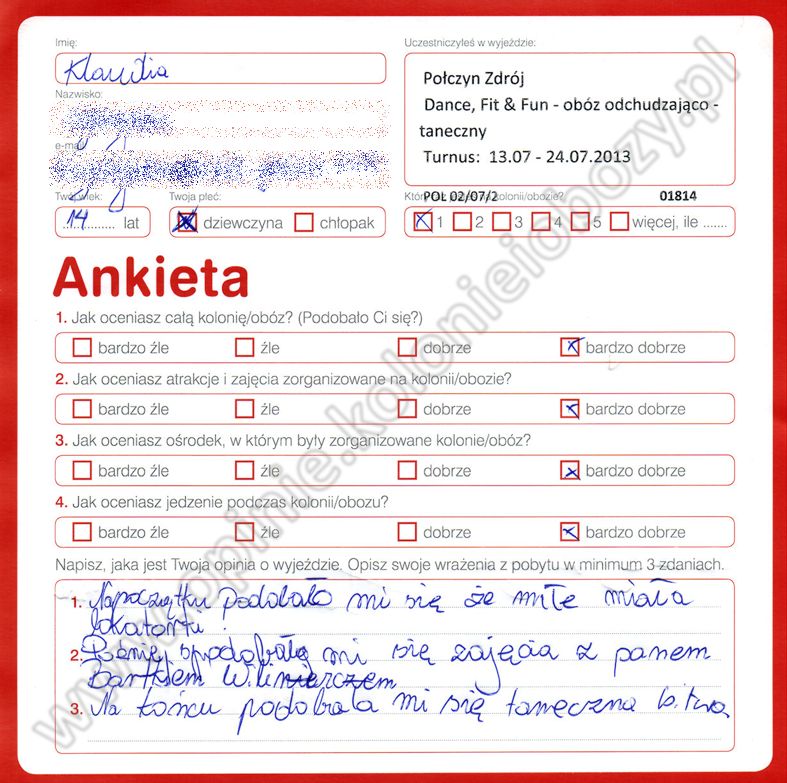 Imię:
Klaudia
Nazwisko:
e-mail
Twój wiek:
14 lat
Twoja płeć:
dziewczyna chłopak
Uczestniczyłeś w wyjeździe:
Połczyn Zdrój
Dance, Fit & Fun - obóz odchudzająco -
taneczny
Turnus: 13.07 - 24.07.2013
POL 02/07/2 01814
kolonii/obozie?
1 2 3 4 5 więcej, ile .......
Ankieta
1. Jak oceniasz całą kolonię/obóz? (Podobało Ci się?)
bardzo źle źle dobrze bardzo dobrze
2. Jak oceniasz atrakcje i zajęcia zorganizowane na kolonii/obozie?
bardzo źle źle dobrze bardzo dobrze
3. Jak oceniasz ośrodek, w którym były zorganizowane kolonie/obóz?
bardzo źle źle dobrze bardzo dobrze
4. Jak oceniasz jedzenie podczas kolonii/obozu?
bardzo źle źle dobrze bardzo dobrze
Napisz, jaka jest Twoja opinia o wyjeździe. Opisz swoje wrażenia z pobytu w minimum 3 zdaniach.
1. Napoczątku podobało mi się że miłe miała
2. mi się zajęcia z panem
Bartkiem
3. Na końcu podobała mi się taneczna bitwa
www.opinie.kolonieiobozy.pl